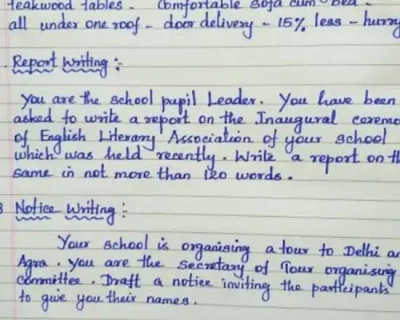 teakwood tables - Comfortable sofa cum - bed -
all under one roof - door delivery - 15% less - hurry
Report Writing :-
You are the school pupil Leader. You have been
asked to write a report on the Inaugural ceremo
of English Literary Association of your school
which was held recently. Write a report on th
same in not more than 120 words.
8 Notice Writing :-
Your school is organising a tour to Delhi an
Agra. You are the Secretary of Tour organising
committee. Draft a notice inviting the participants
to give you their names.